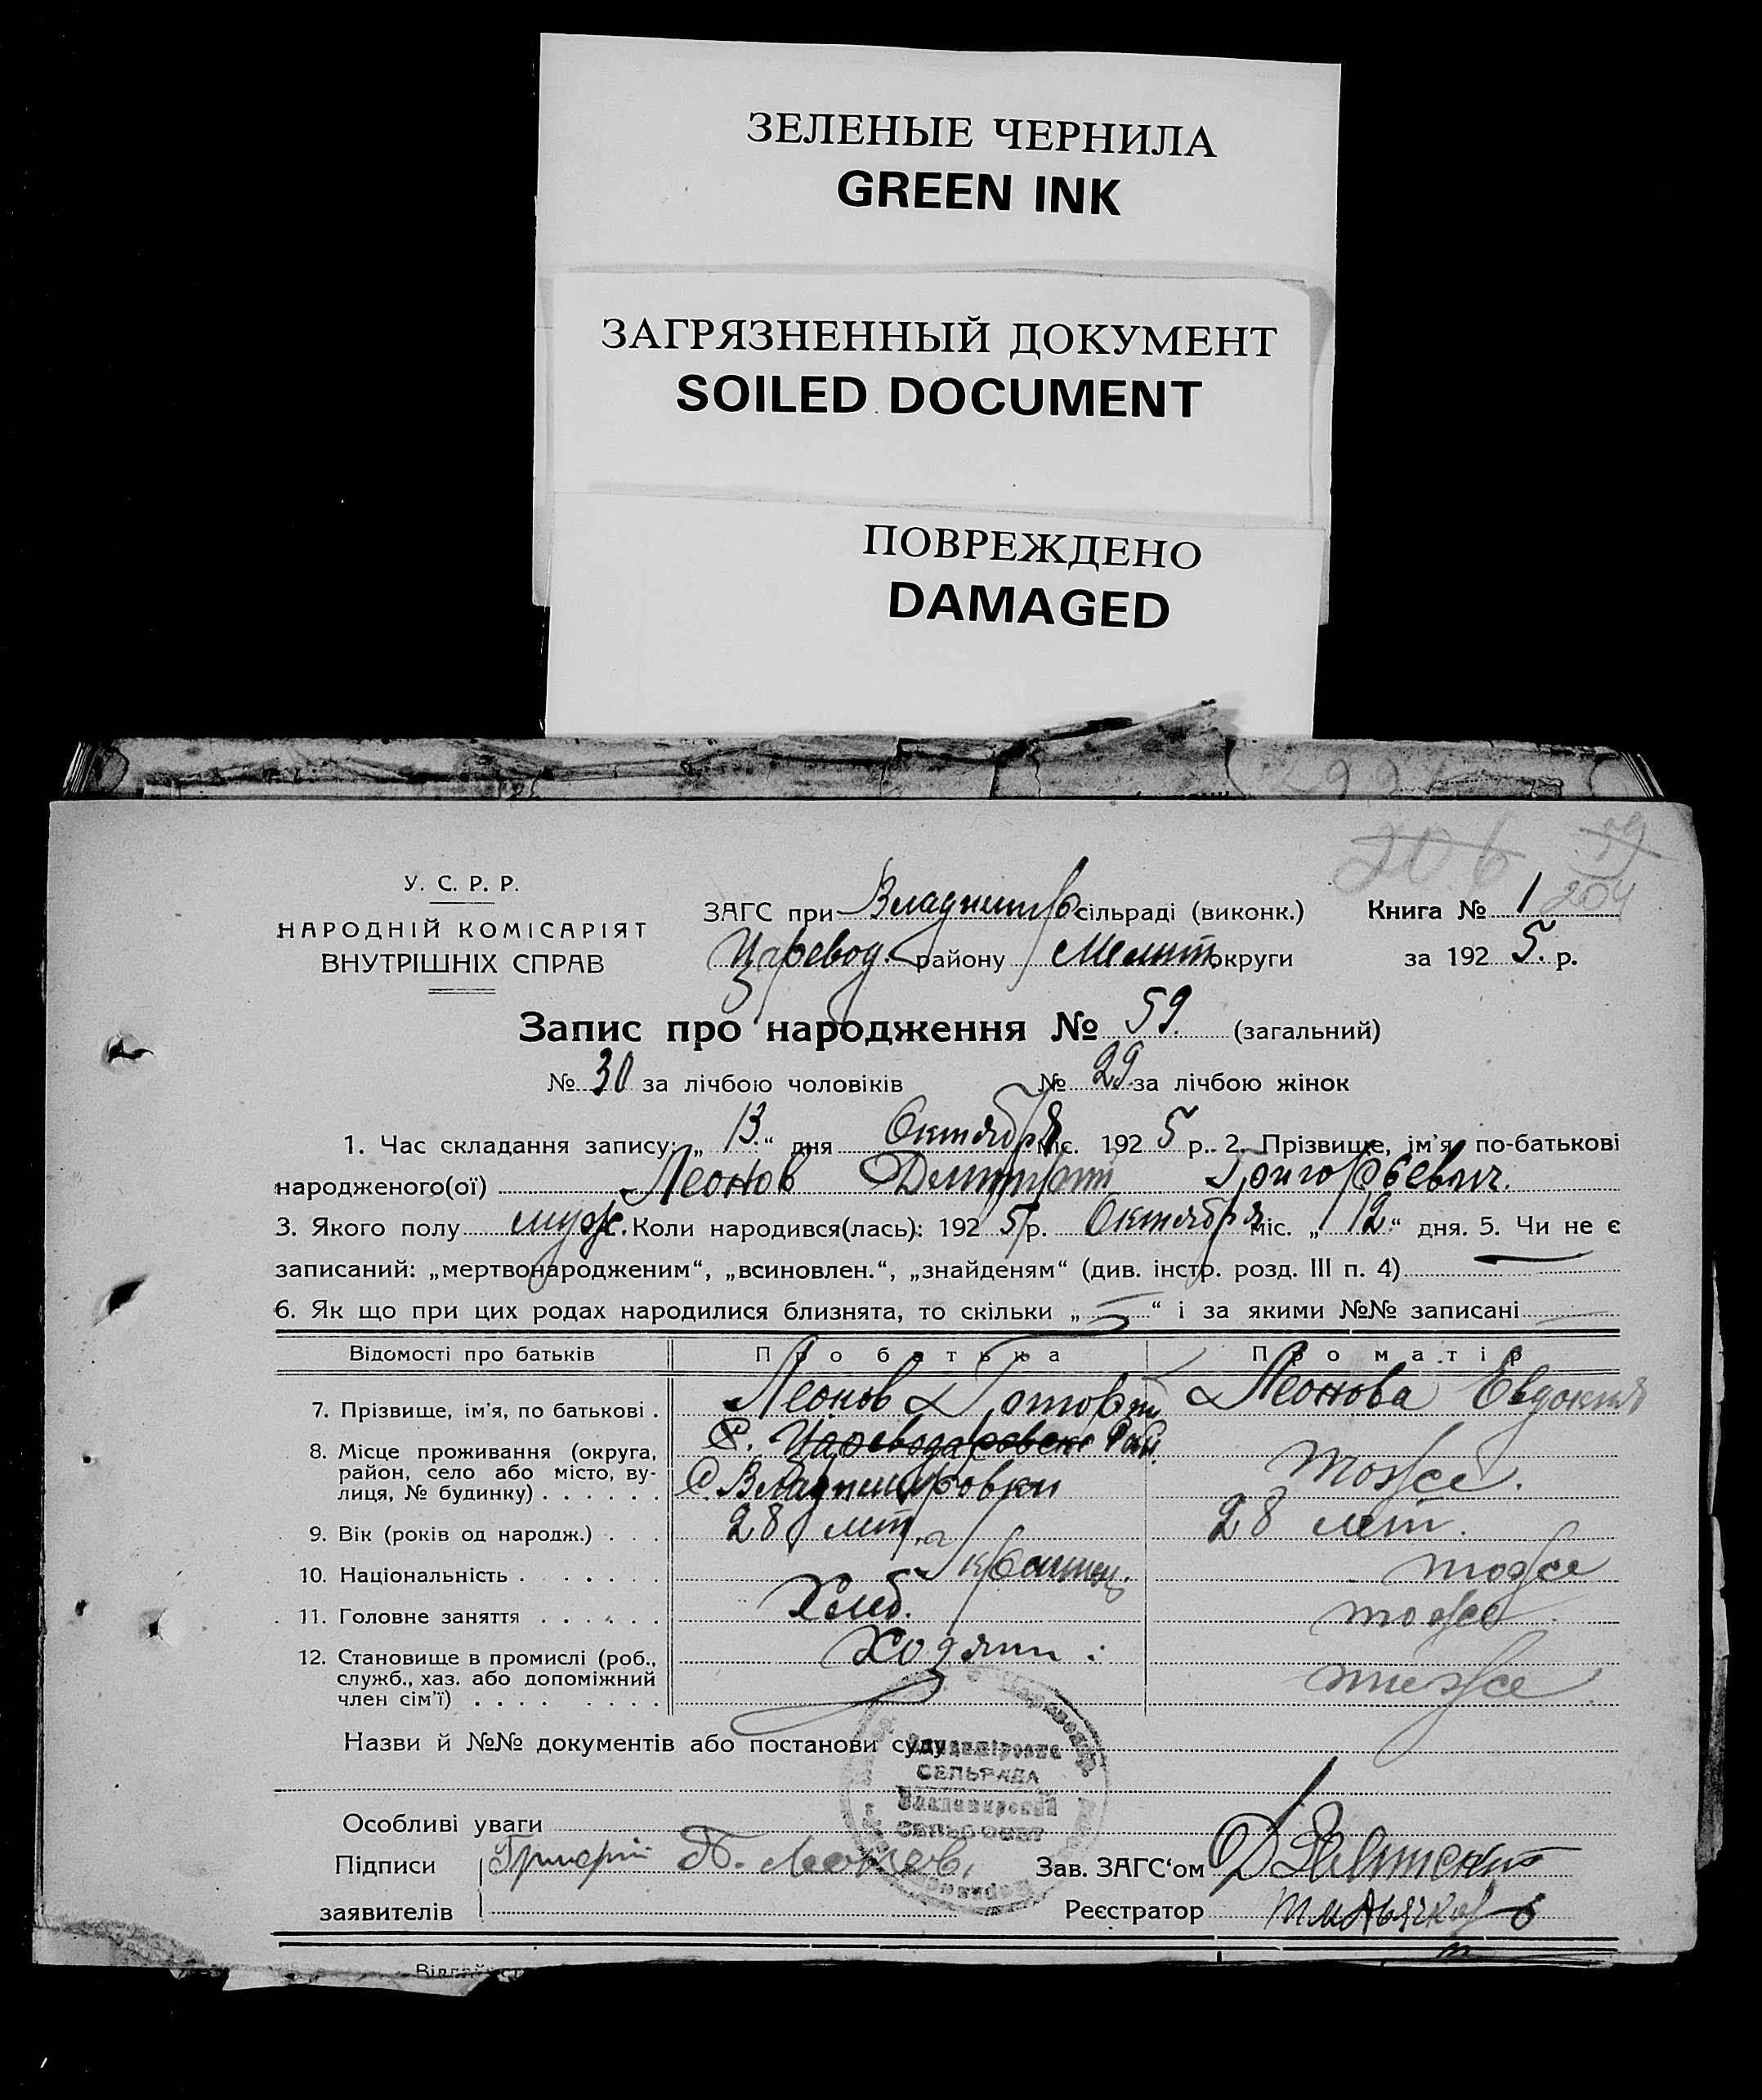 ЗЕЛЕНЫЕ ЧЕРНИЛА
GREEN INK
ЗАГРЯЗНЕННЫЙ ДОКУМЕНТ
SOILED DOCUMENT
ПОВРЕЖДЕНО
DAMAGED
206 59
204
У. С. Р. Р.
НАРОДНІЙ КОМІСАРІЯТ
ВНУТРІШНІХ СПРАВ
ЗАГС при Владимир сільраді (виконк.) Книга № 1
Царевод. району Мелит округи за 192 5. р.
Запис про народження № 59. (загальний)
№ 30 за лічбою чоловіків № 29 за лічбою жінок
1. Час складання запису: „ 13 “ дня Октября міс. 192 5 р. 2. Прізвище, ім'я, по-батькові
народженого(ої) Леонов Дмитрий Григорьевич.
3. Якого полу муж. Коли народився(лась): 192 5 р. Октября міс. „ 12 “ дня. 5. Чи не є
записаний: „мертвонародженим“, „всиновлен.“, „знайденям“ (див. інстр. розд. III п. 4)
6. Як що при цих родах народилися близнята, то скільки „ “ і за якими №№ записані
Відомості про батьків Про батька Про матір
7. Прізвище, ім'я, по батькові . Леонов Леонова Евдокия
8. Місце проживання (округа, район, село або місто, ву-лиця, № будинку) . . . . . . Р. Цареводаровско Рай. С. Владимировки тоже.
9. Вік (років од народж.) . . . 28 лет 28 лет.
10. Національність . . . . . . тоже
11. Головне заняття . . . . . . Хлеб. тоже
12. Становище в промислі (роб., служб., хаз. або допоміжний член сім'ї) . . . . . . . . Хозяин тоже
Назви й №№ документів або постанови суду
СЕЛЬРАДА
Владимирский
СЕЛЬСОВЕТ
Особливі уваги
Підписи Григорій Леонов
Зав. ЗАГС‘ом
заявителів
Реєстратор